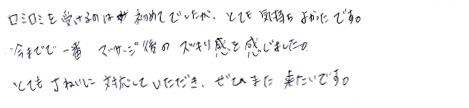 ロミロミを受けるのは初めてでしたが、とても気持ちよかったです。
今までで一番マッサージ後のスッキリ感を感じました。
とてもていねいに対応していただき、ぜひまた来たいです。